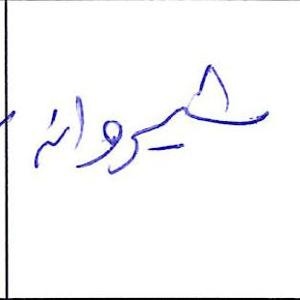 شیروانه